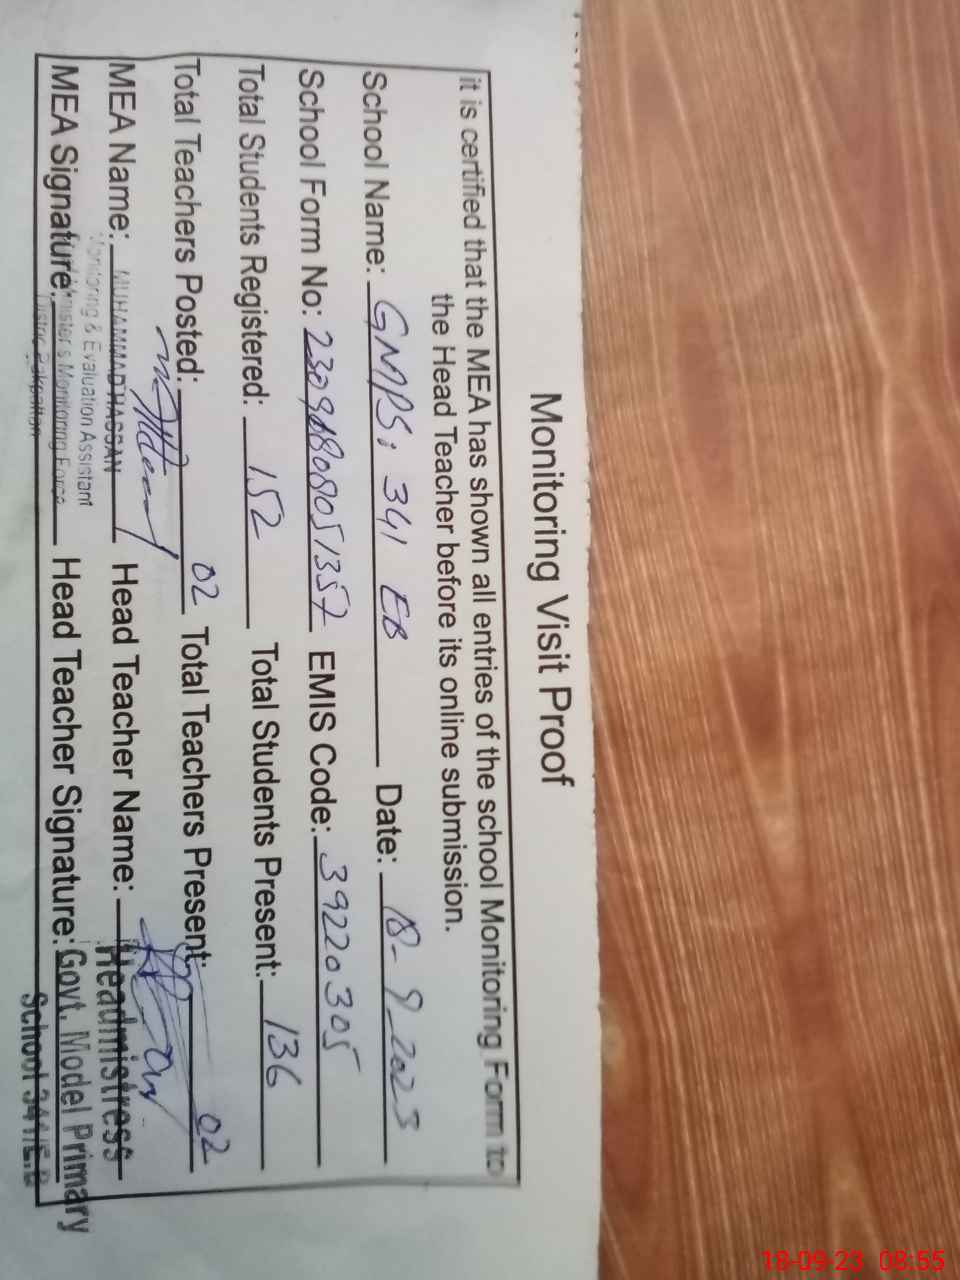 Monitoring Visit Proof
it is certified that the MEA has shown all entries of the school Monitoring Form to
the Head Teacher before its online submission.
School Name: GMPS; 341 EB Date: 18-9-2023
School Form No: EMIS Code: 39220305
Total Students Registered: 152 Total Students Present: 136
Total Teachers Posted: 02 Total Teachers Present: 02
MEA Name: MUHAMMAD HASSAN Head Teacher Name: Headmistress
Monitoring & Evaluation Assistant
MEA Signature: Monitoring Force Head Teacher Signature: Govt. Model Primary
School 341/E.B
18-09-23 08:55